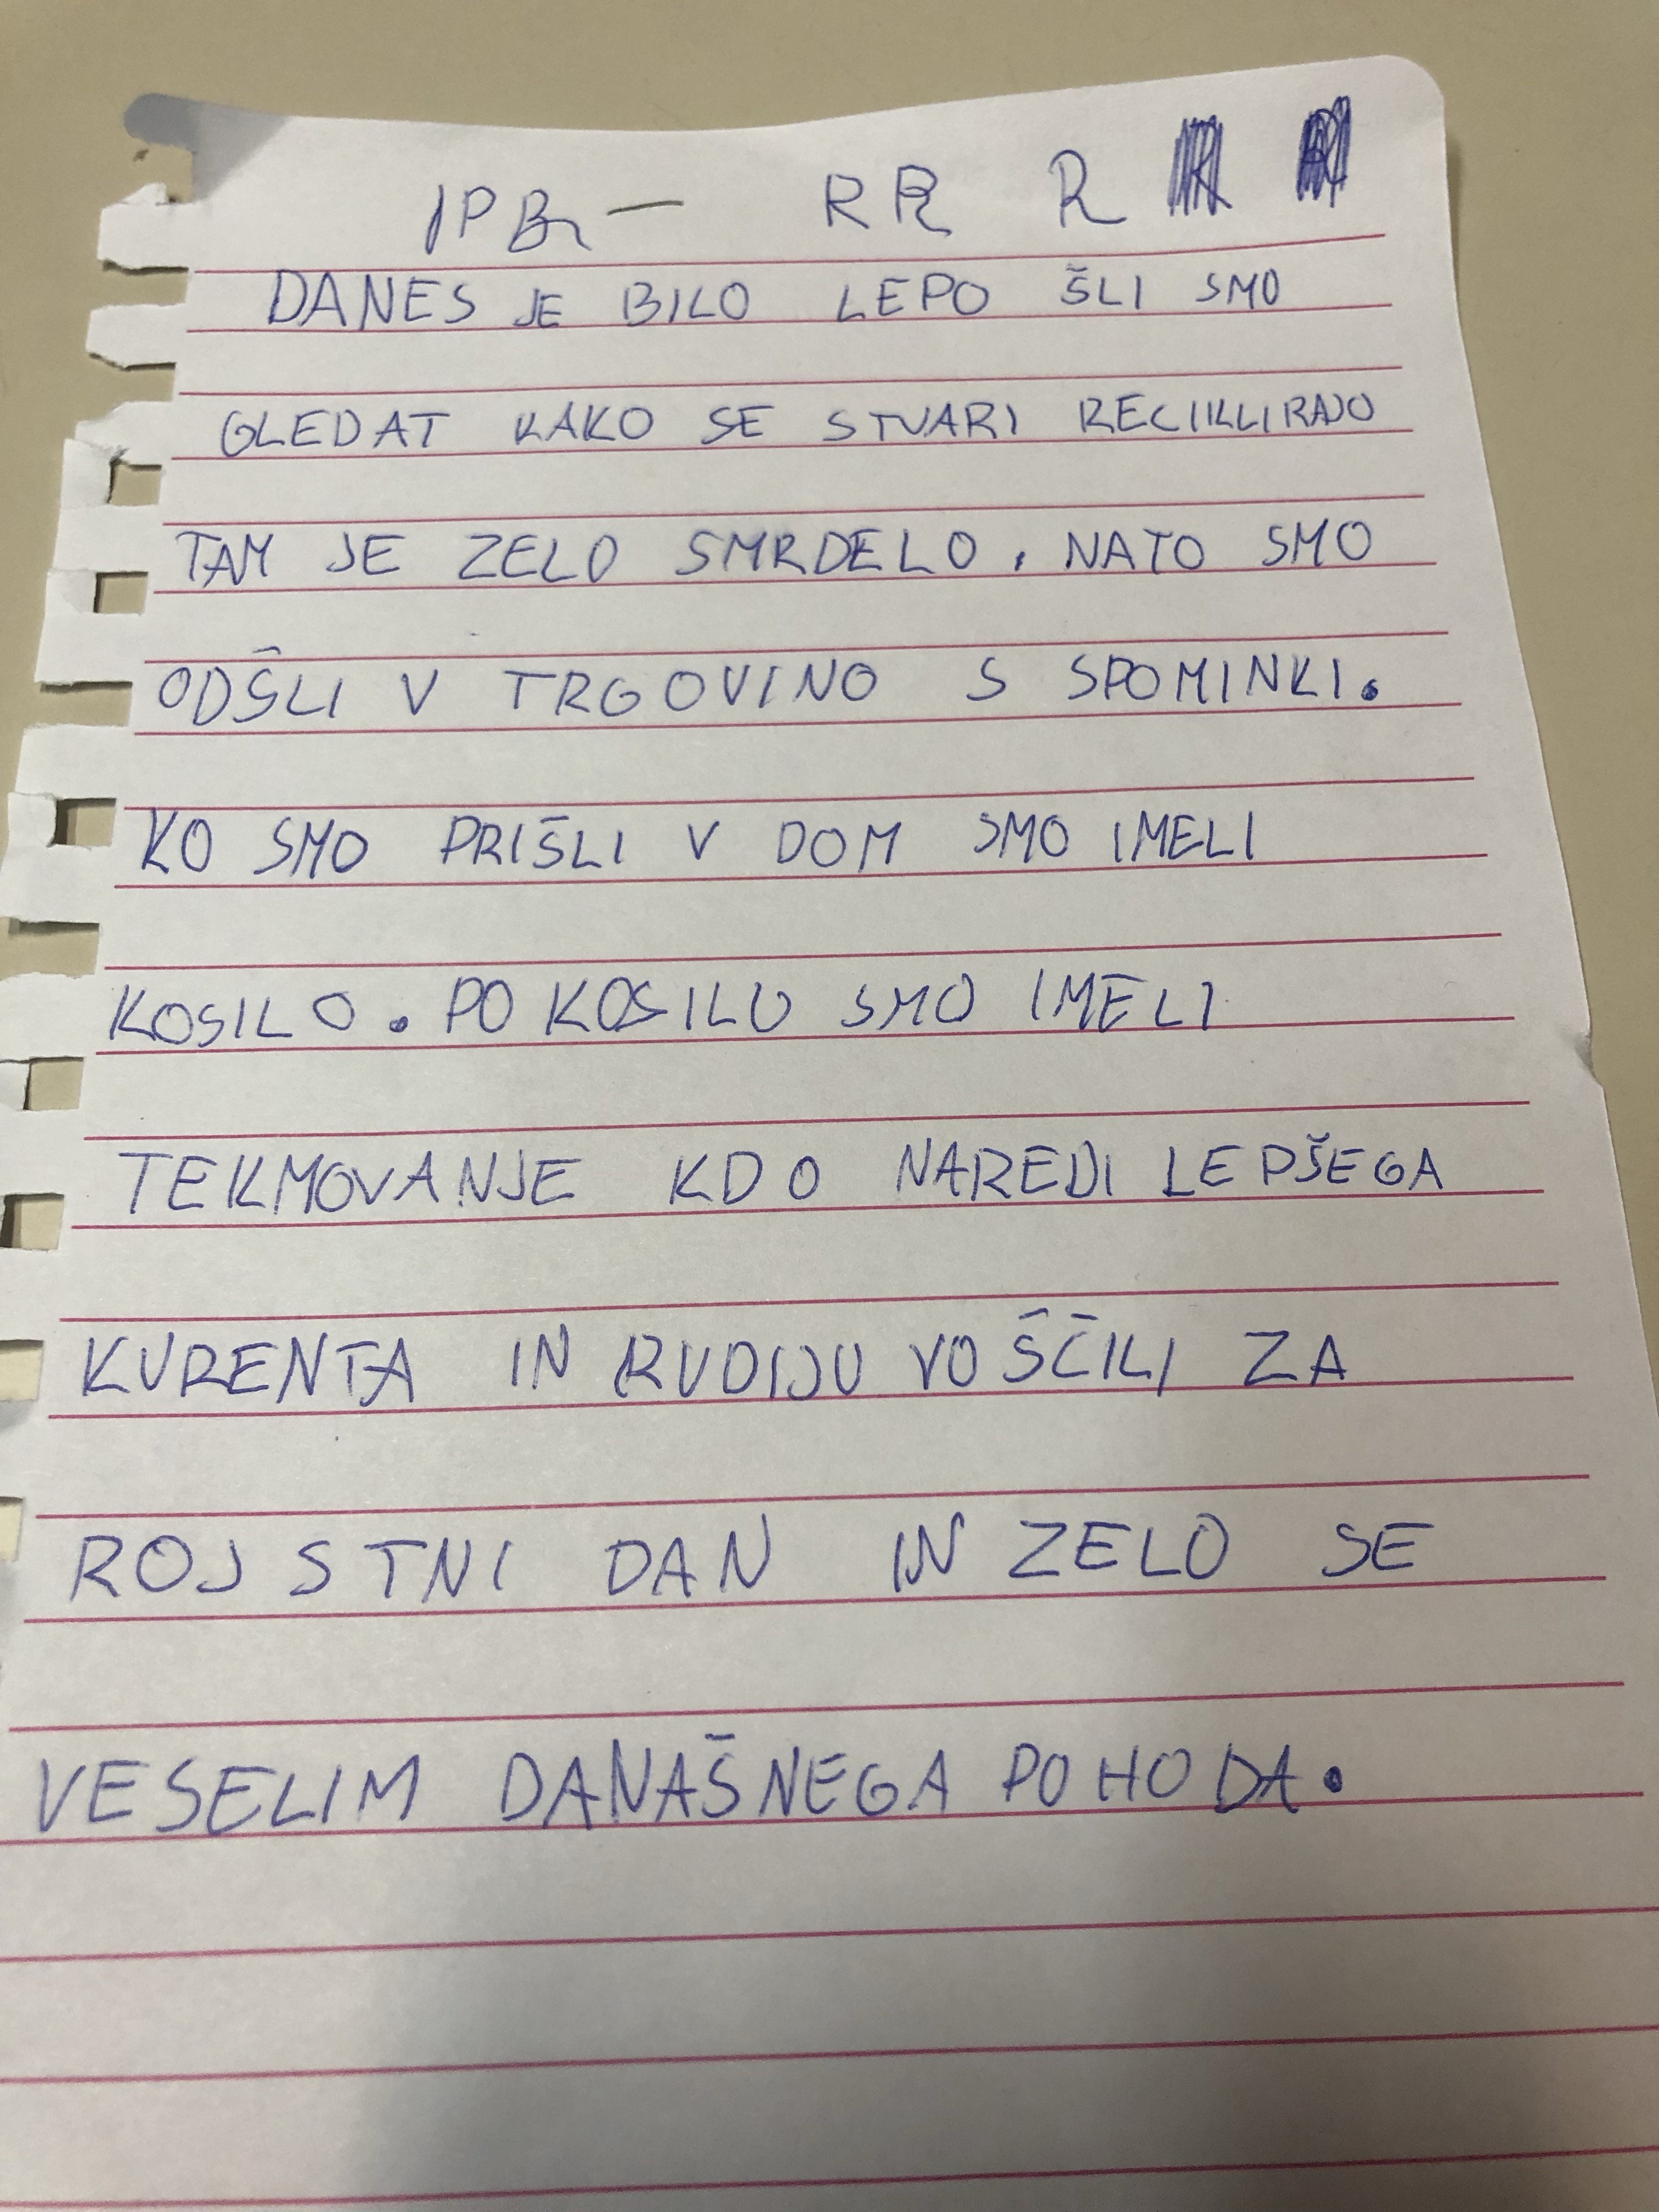 RR R
DANES JE BILO LEPO ŠLI SMO
GLEDAT KAKO SE STVARI RECIKLIRAJO
TAM JE ZELO SMRDELO. NATO SMO
ODŠLI V TRGOVINO S SPOMINKI.
KO SMO PRIŠLI V DOM SMO IMELI
KOSILO. PO KOSILU SMO IMELI
TEKMOVANJE KDO NAREDI LEPŠEGA
KURENTA IN RUDIJU VOŠČILI ZA
ROJSTNI DAN IN ZELO SE
VESELIM DANAŠNEGA POHODA.